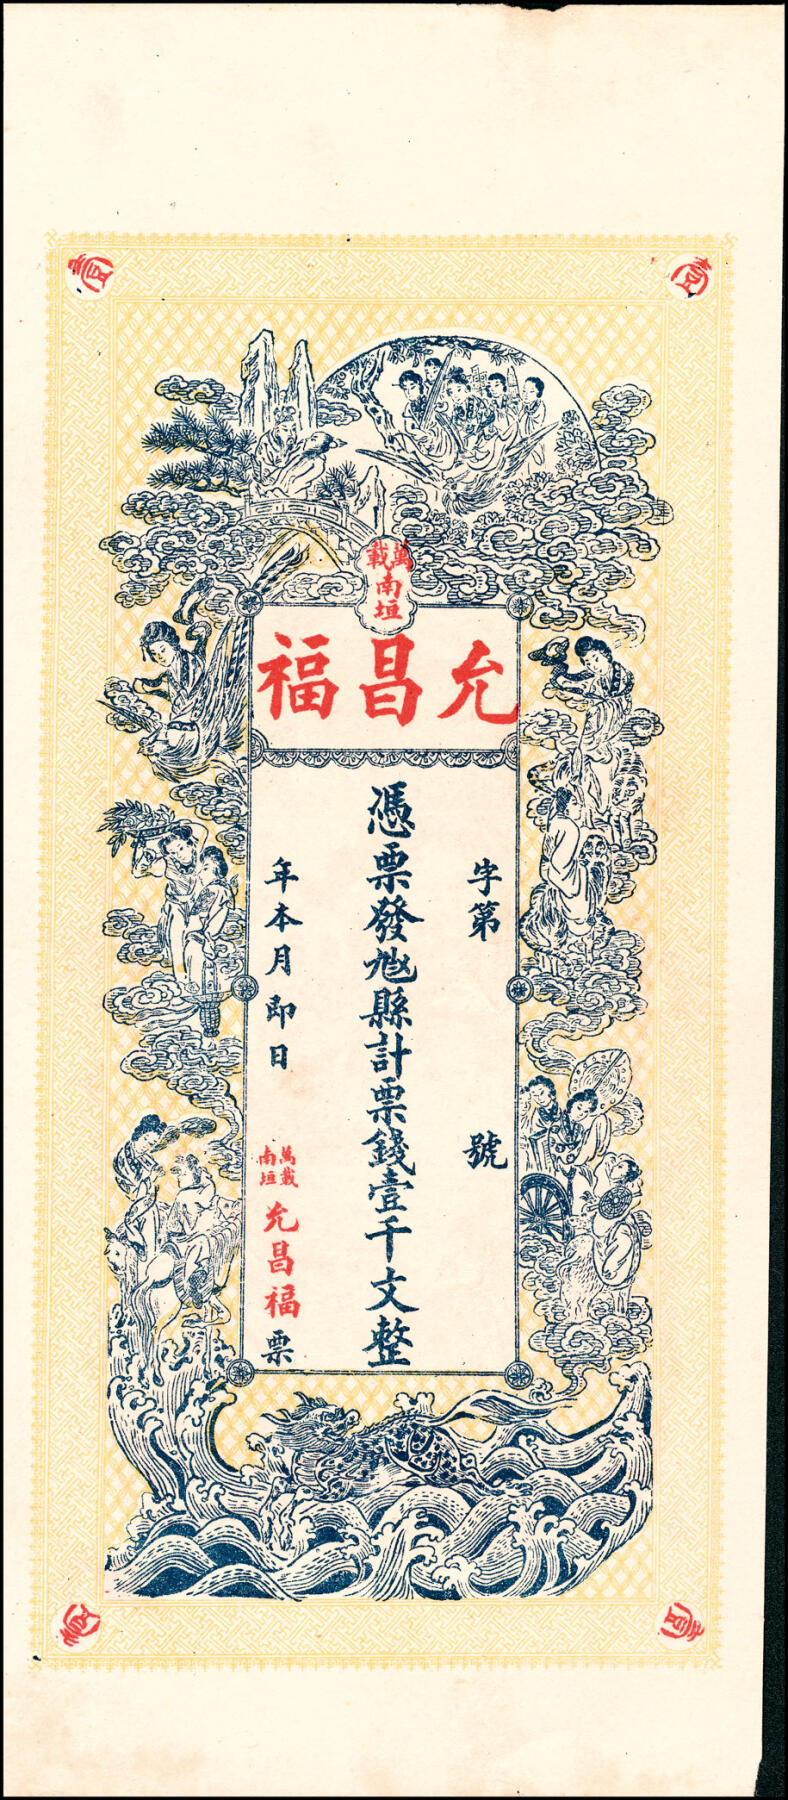 萬載南垣
允昌福
字第 號
憑票發縣計票錢壹千文整
年本月即日
萬載南垣 允昌福票